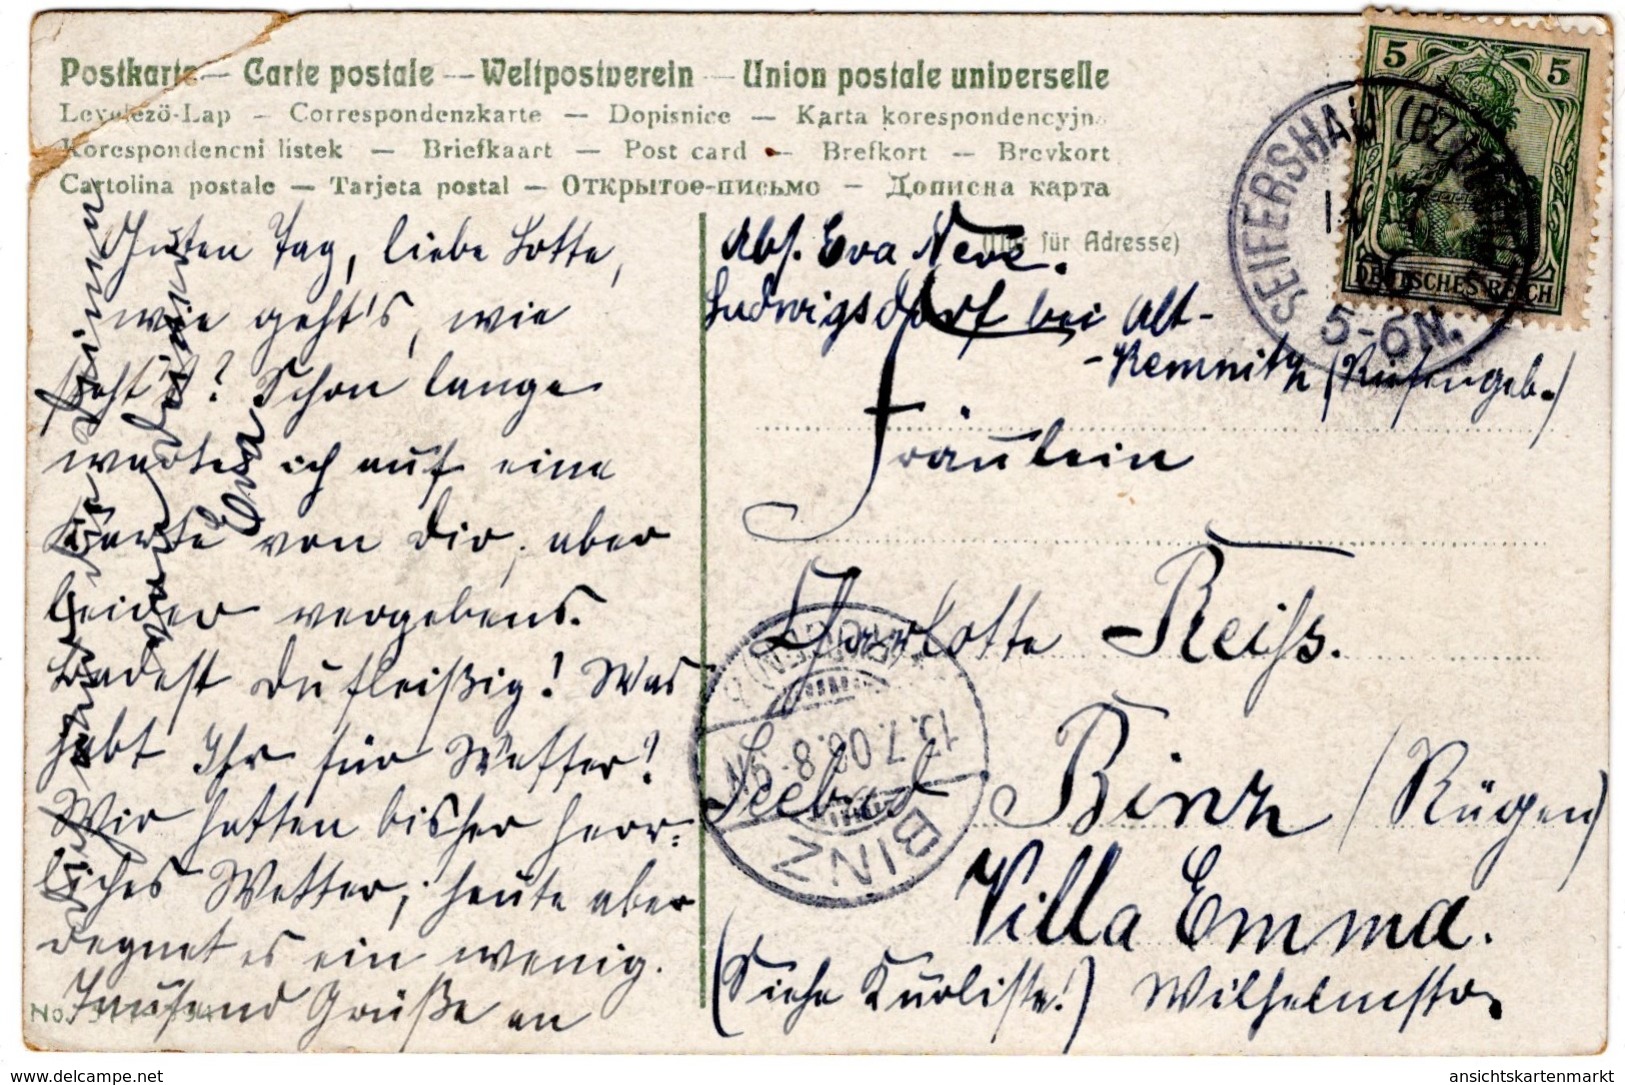 Postkarte — Carte postale — Weltpostverein — Union postale universelle
Levelező-Lap — Correspondenzkarte — Dopisnice — Karta korespondencyjna
Korespondencni listek — Briefkaart — Post card — Brefkort — Brevkort
Cartolina postale — Tarjeta postal — Открытое-письмо — Дописна карта
Guten Tag, liebe Lotte,
wie geht's, wie
steht's? Schon lange
warte ich auf eine
Karte von Dir, aber
leider vergebens.
Badest Du fleißig! Was
habt Ihr für Wetter?
Wir hatten bisher herr-
liches Wetter, heute aber
regnet es ein wenig.
Tausend Grüße an
von Deiner
Eva
No.
Abs. Eva Neve.
(Nur für Adresse)
Ludwigsdorf bei Alt-
-Kemnitz (Riesengeb.)
Fräulein
Charlotte Reiß.
Seebad Binz (Rügen)
Villa Emma.
(Siehe Kurliste!) Wilhelmstr.
5 5
DEUTSCHES REICH
SEIFERSHAU (BZ.
5-6N.
BINZ
(RÜGEN)
15.7.06.8-9N
ansichtskartenmarkt
www.delcampe.net